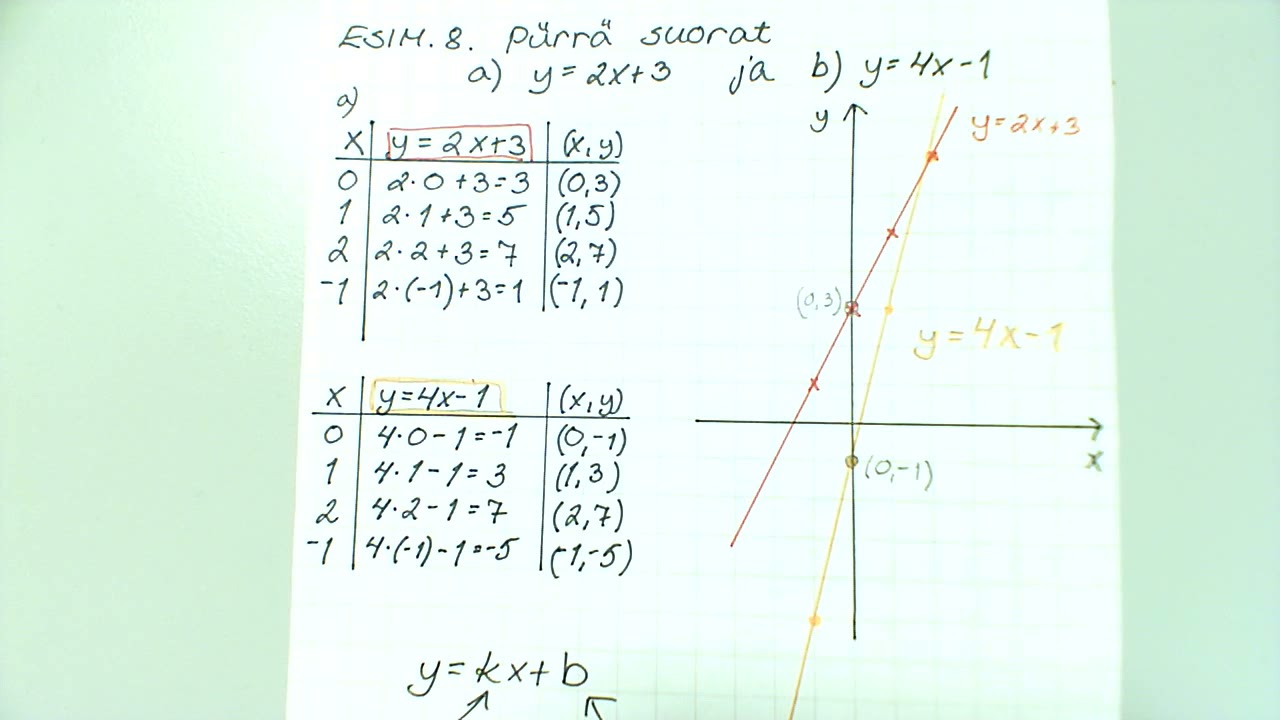 ESIM. 8. Piirrä suorat
a) y = 2x+3 ja b) y = 4x-1
a)
x | y = 2x+3 | (x, y)
0 | 2·0+3=3 | (0,3)
1 | 2·1+3=5 | (1,5)
2 | 2·2+3=7 | (2,7)
-1 | 2·(-1)+3=1 | (-1, 1)
x | y=4x-1 | (x,y)
0 | 4·0-1=-1 | (0,-1)
1 | 4·1-1=3 | (1,3)
2 | 4·2-1=7 | (2,7)
-1 | 4·(-1)-1=-5 | (-1,-5)
y = kx+b
y
y=2x+3
(0,3)
y=4x-1
x
(0,-1)